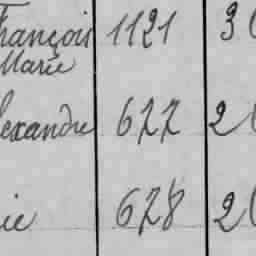 François 1121 3
Marie
lexandre 677 2
ie 678 2